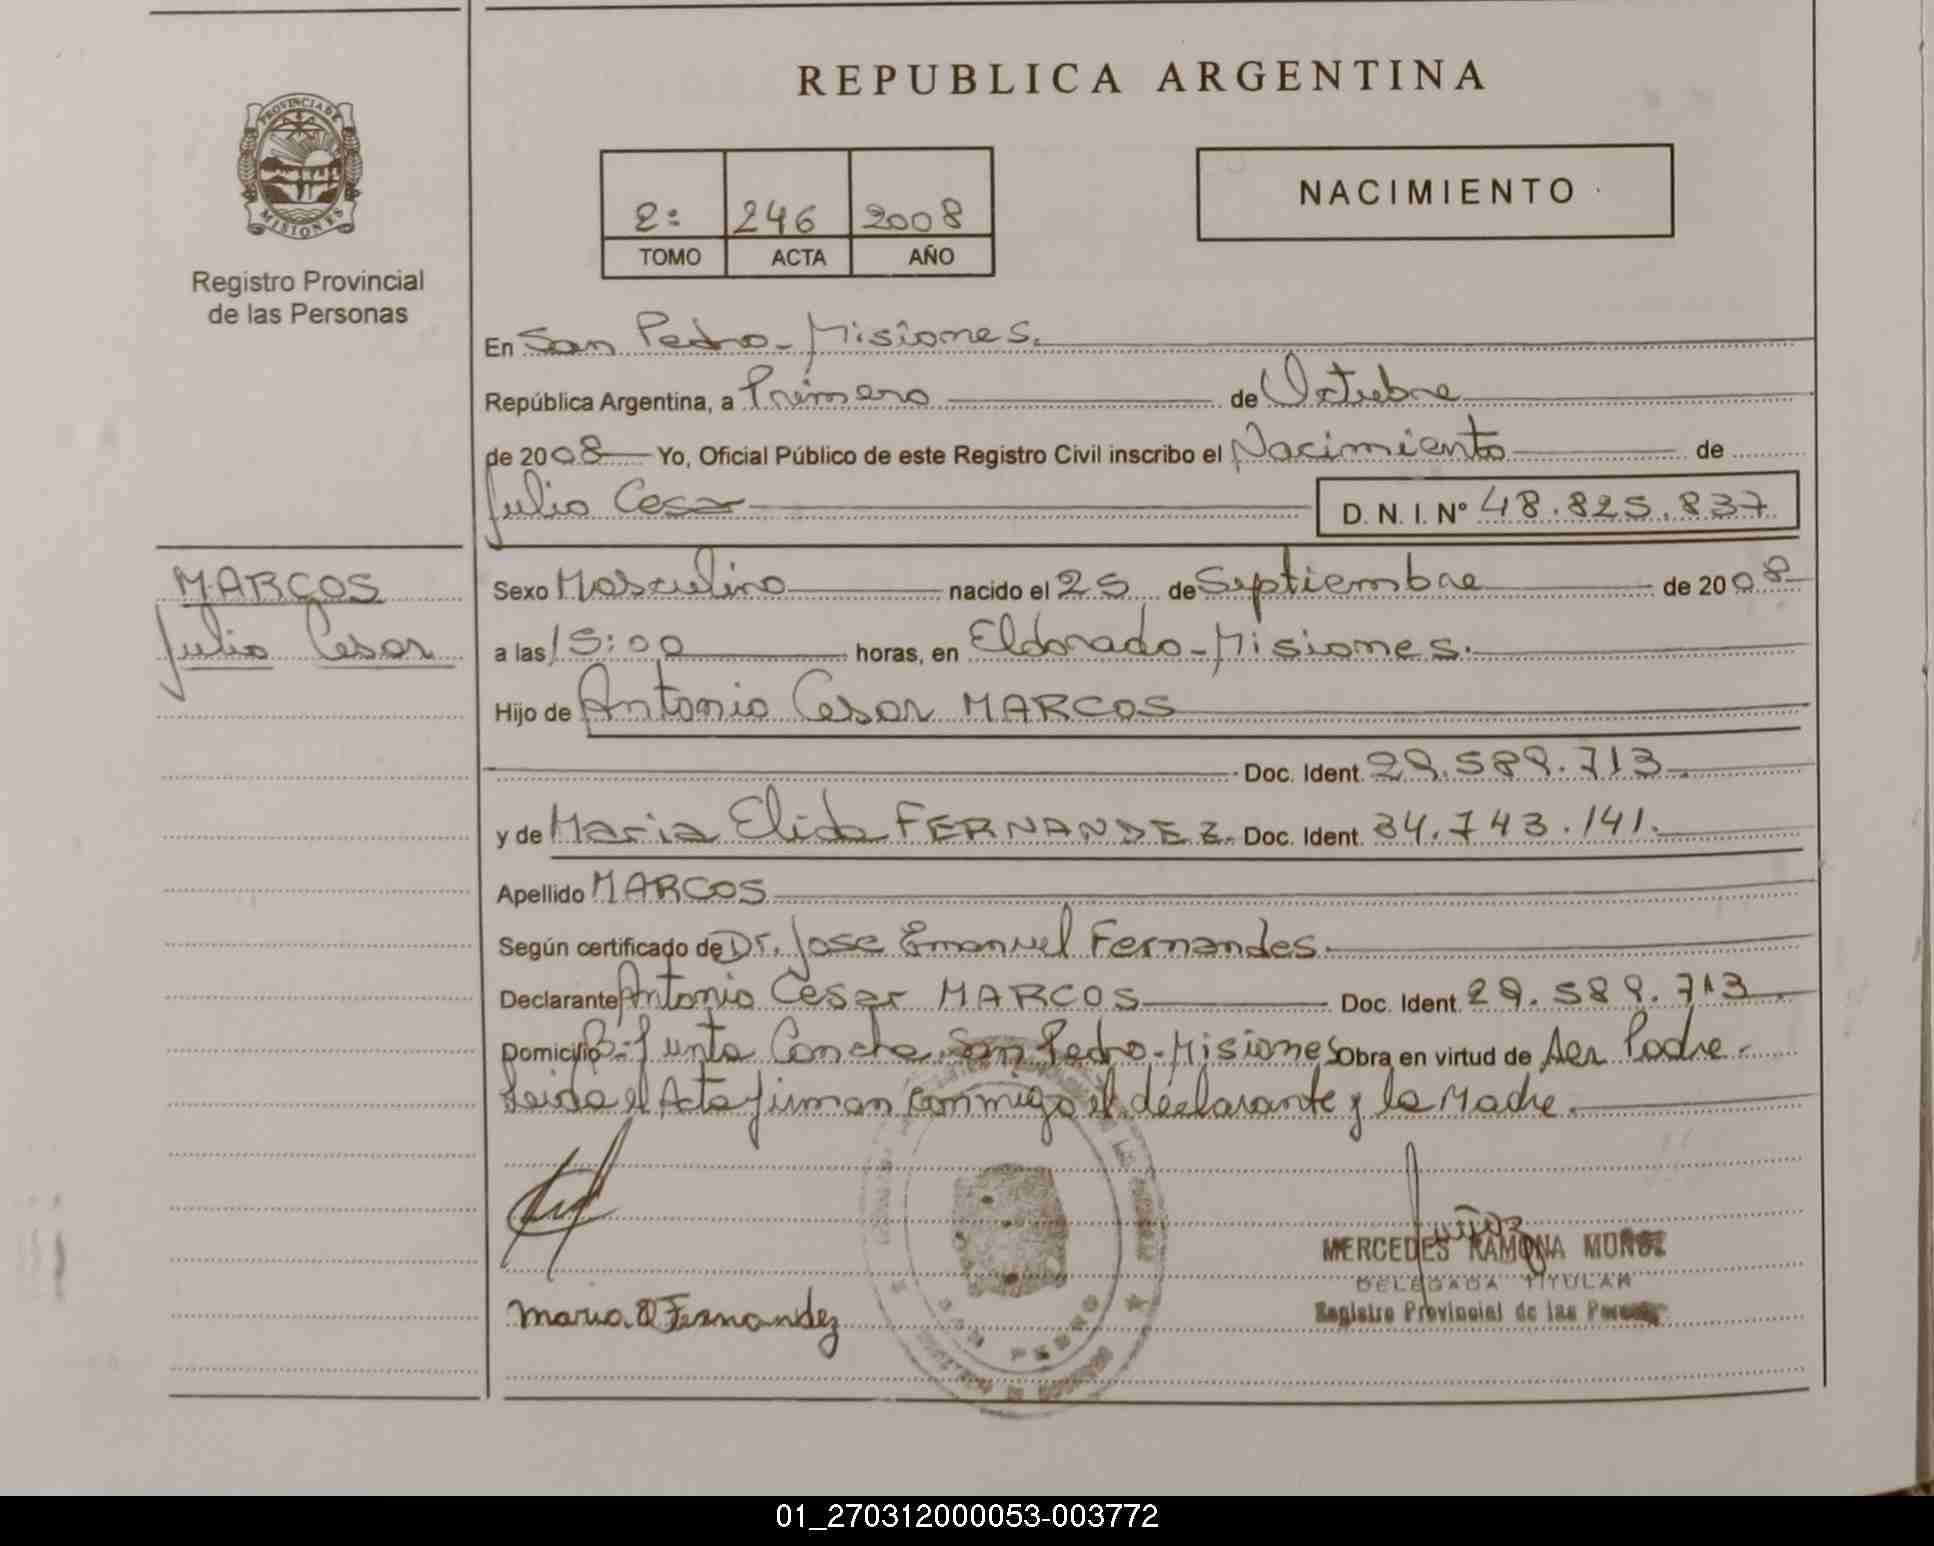 REPUBLICA ARGENTINA
PROVINCIA DE
MISIONES
Registro Provincial
de las Personas
2: 246 2008
TOMO ACTA AÑO
NACIMIENTO
En San Pedro - Misiones.
República Argentina, a Primero de Octubre
de 2008 Yo, Oficial Público de este Registro Civil inscribo el Nacimiento de
Julio Cesar D. N. I. N° 48.825.837
MARCOS
Julio Cesar
Sexo Masculino nacido el 25 de Septiembre de 2008
a las 15:00 horas, en Eldorado - Misiones.
Hijo de Antonio Cesar MARCOS
Doc. Ident. 29.589.713
y de Maria Elida FERNANDEZ. Doc. Ident. 34.743.141.
Apellido MARCOS
Según certificado de Dr. Jose Emanuel Fernandes.
Declarante Antonio Cesar MARCOS Doc. Ident. 29.589.713
Domicilio B- Junta Concha San Pedro - Misiones Obra en virtud de ser Padre.
Leida el Acta firman conmigo el declarante y la Madre.
MERCEDES RAMONA MUÑOZ
DELEGADA TITULAR
Registro Provincial de las
Maria Fernandez
SAN PEDRO
01_270312000053-003772